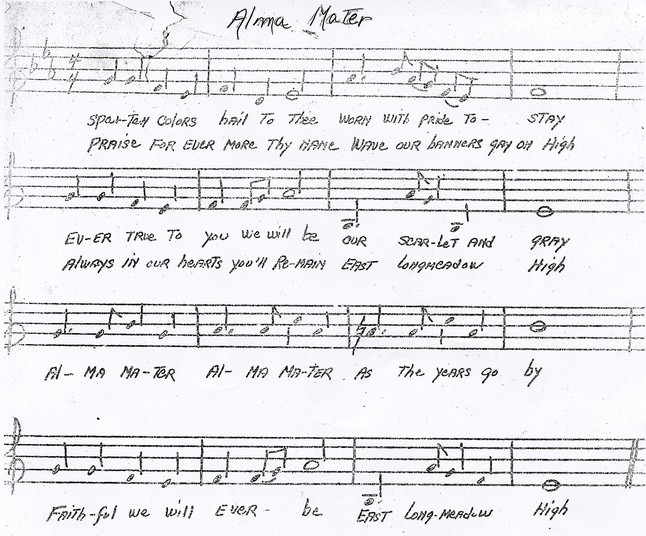 Alma Mater
4
4
Spar-Tan Colors hail To Thee Worn With Pride To- STAY
Praise For Ever More Thy Name Wave our banners gay on High
EV-ER True To you we will be our SCAR-LET And GRAY
Always in our hearts you'll Re-main East Longmeadow High
Al- MA MA-TER Al- MA MA-TER As The years go by
Faith-ful we will Ever- be East Long-Meadow High